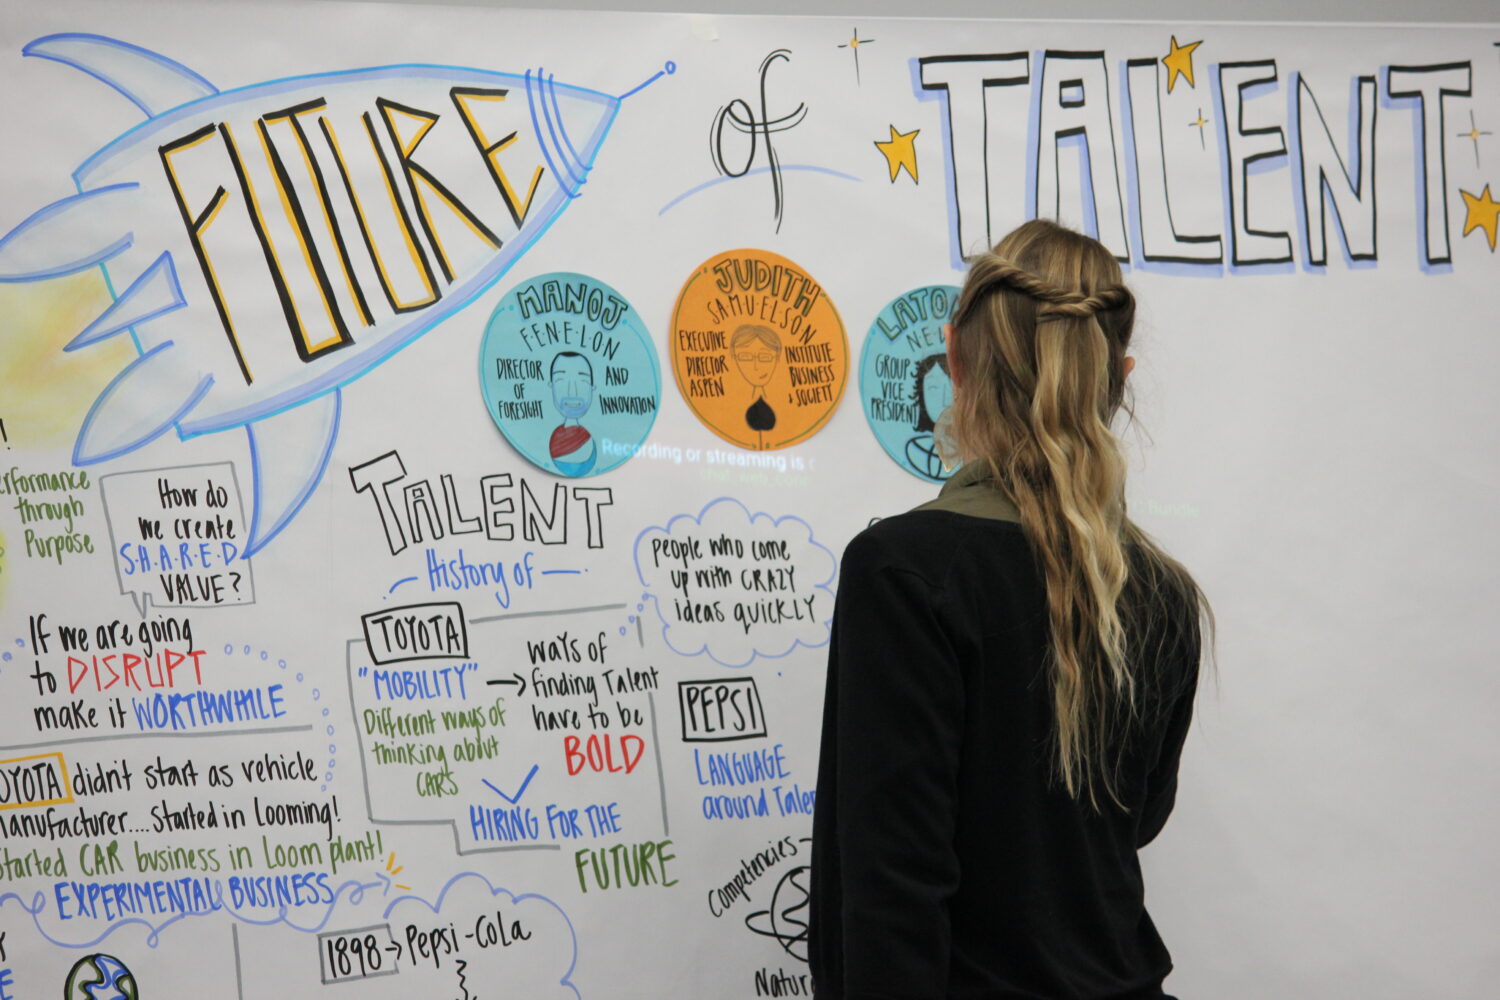 FUTURE
of
TALENT
MANOJ
F·E·N·E·L·O·N
DIRECTOR
OF
FORESIGHT
AND
INNOVATION
JUDITH
S·A·M·U·E·L·S·O·N
EXECUTIVE
DIRECTOR
ASPEN
INSTITUTE
BUSINESS
& SOCIETY
GROUP
VICE
PRESIDENT
Recording or streaming is
Bundle
through
Purpose
How do
we create
S·H·A·R·E·D
VALUE?
If we are going
to DISRUPT
make it WORTHWHILE
didn't start as vehicle
.... Started in Looming!
Started CAR business in Loom plant!
EXPERIMENTAL BUSINESS
TALENT
- History of -
TOYOTA
"MOBILITY" →
Different ways of
thinking about
CARS
ways of
finding Talent
have to be
BOLD
HIRING FOR THE
FUTURE
people who come
up with CRAZY
ideas quickly
PEPSI
LANGUAGE
around
Competencies
1898 → Pepsi-Cola